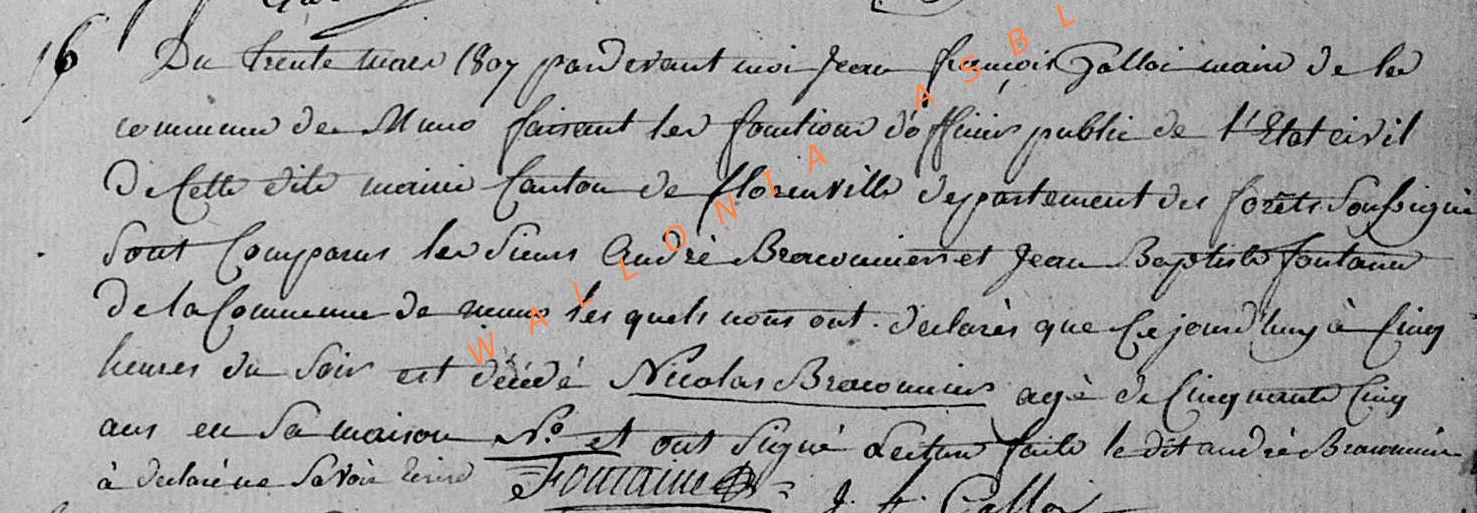 16 Du trente mars 1807 pardevant moi Jean françois Galloi maire de la
commune de Muno faisant les fonctions d'officier public de l'Etat civil
De Cette dite mairie Canton de florenville departement des forêts Soussigné
Sont Comparus les Sieurs André Braconnier et Jean Baptiste fontaine
De la Commune de muno les quels nous ont declarés que Cejourd'huy à Cinq
heures du Soir est décédé Nicolas Braconnier agé de Cinquante Cinq
ans en Sa maison N.o et ont Signé Lecture faite le dit andré Braconnier
à declaré ne Savoir Ecrire Fontaine J. f. Galloi
WALLONIA ASBL